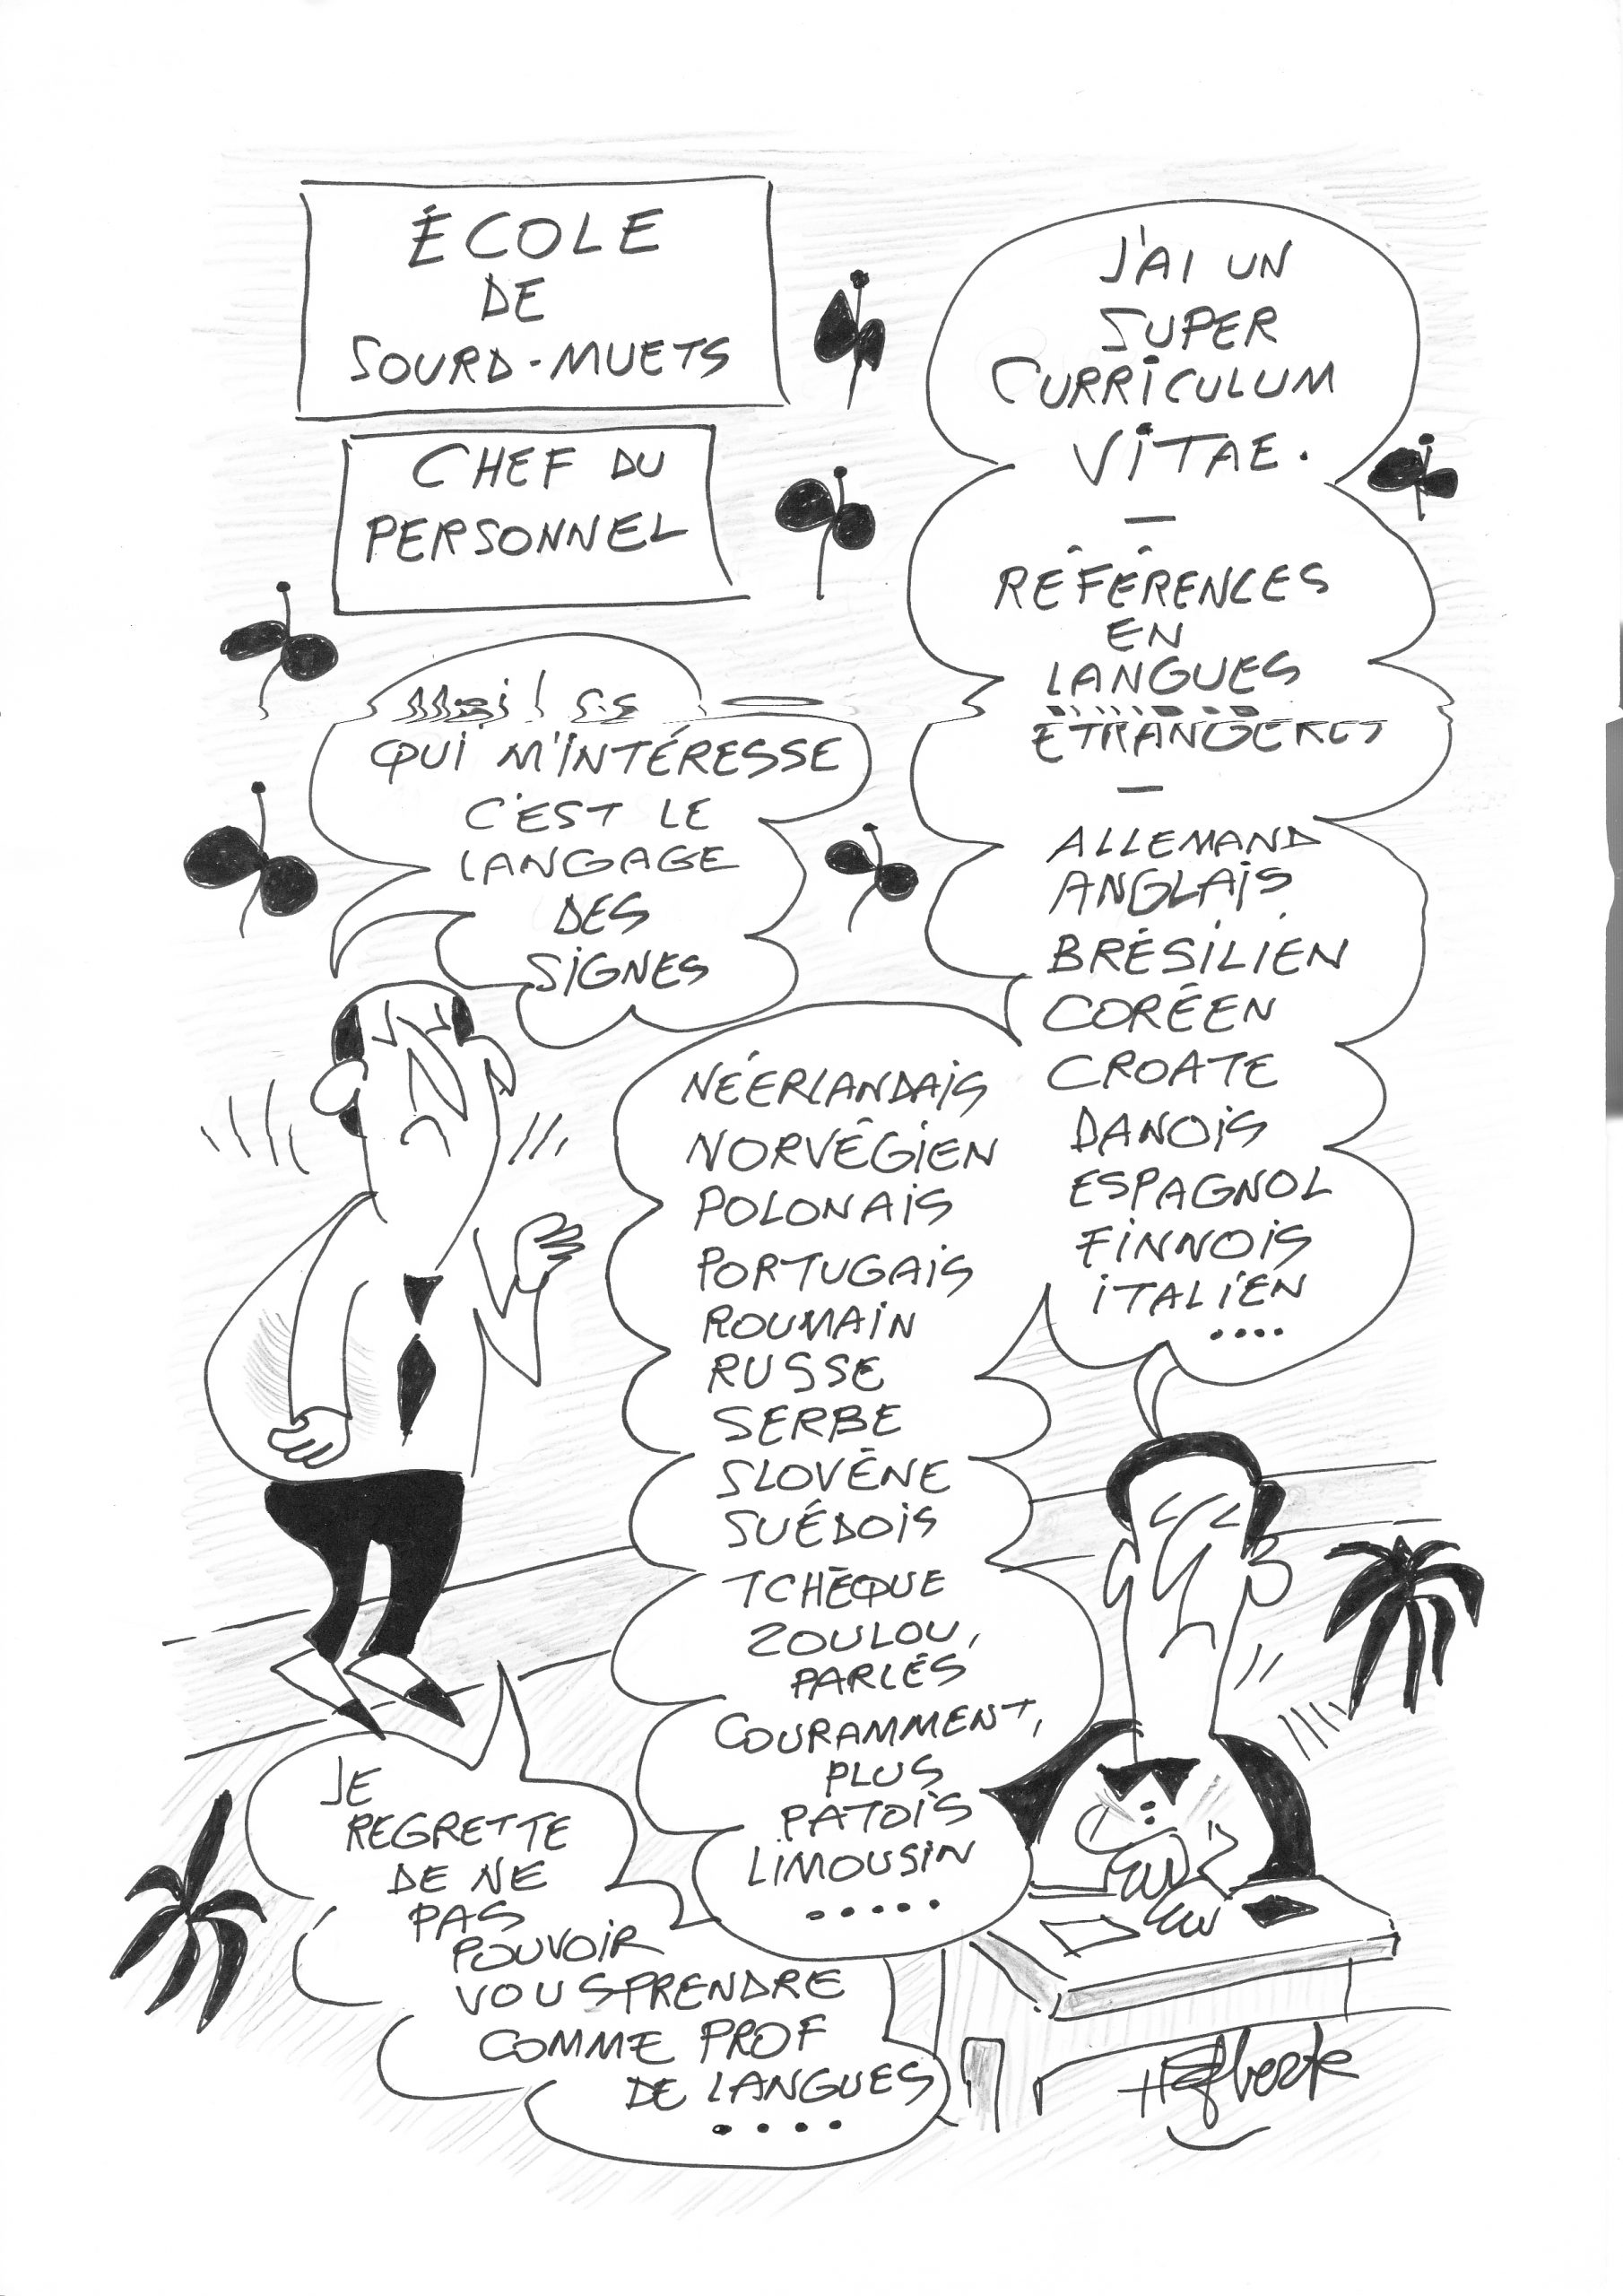 ÉCOLE
DE
SOURD-MUETS
CHEF DU
PERSONNEL
J'AI UN
SUPER
CURRICULUM
VITAE.
—
RÉFÉRENCES
EN
LANGUES
ÉTRANGERES
—
ALLEMAND
ANGLAIS
BRÉSILIEN
CORÉEN
CROATE
DANOIS
ESPAGNOL
FINNOIS
ITALIEN
....
NÉERLANDAIS
NORVÉGIEN
POLONAIS
PORTUGAIS
ROUMAIN
RUSSE
SERBE
SLOVÉNE
SUÉDOIS
TCHÉQUE
ZOULOU,
PARLÉS
COURAMMENT,
PLUS
PATOIS
LIMOUSIN
.....
QUI M'INTÉRESSE
C'EST LE
LANGAGE
DES
SIGNES
JE
REGRETTE
DE NE
PAS
POUVOIR
VOUS PRENDRE
COMME PROF
DE LANGUES
....